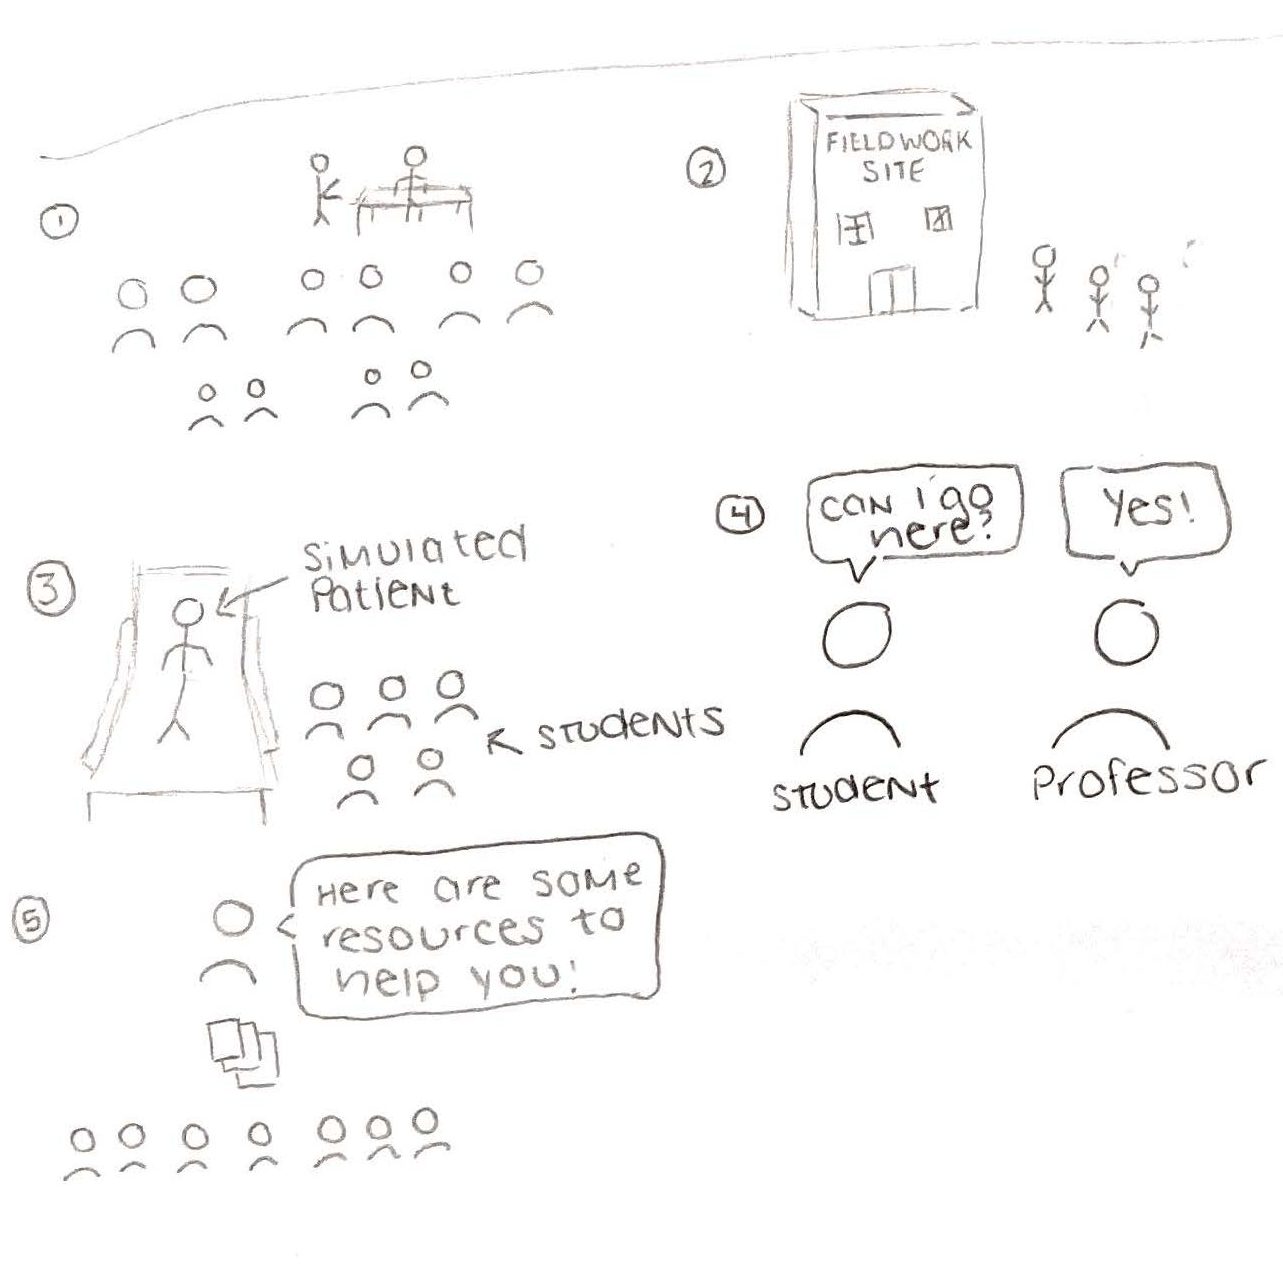 1
2
FIELDWORK
SITE
3
Simulated
Patient
Students
4
Can I go
here?
Yes!
Student
Professor
5
Here are some
resources to
help you!